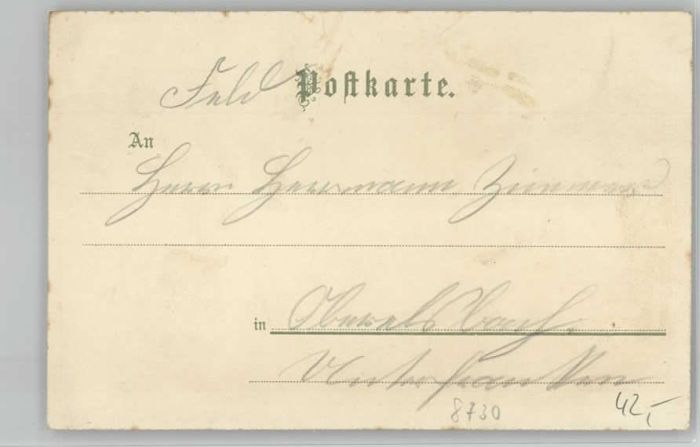 Feld Postkarte.
An
Herrn Herrmann
in Oberelsbach.
Unterfranken
8730 42,-